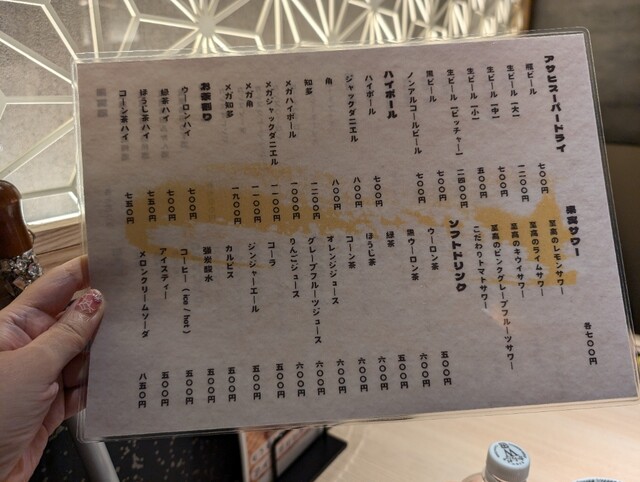 アサヒスーパードライ
瓶ビール 七〇〇円
生ビール【大】 一二〇〇円
生ビール【中】 七〇〇円
生ビール【小】 五〇〇円
生ビール【ピッチャー】 二四〇〇円
黒ビール 七〇〇円
ノンアルコールビール 七〇〇円
ハイボール
ハイボール 七〇〇円
ジャックダニエル 八〇〇円
角 八〇〇円
知多 一二〇〇円
メガハイボール 一〇〇〇円
メガジャックダニエル 一一〇〇円
メガ角 一一〇〇円
メガ知多 一九〇〇円
お茶割り
ウーロンハイ 七〇〇円
緑茶ハイ 七〇〇円
ほうじ茶ハイ 七五〇円
コーン茶ハイ 七五〇円
果実サワー 各七〇〇円
至高のレモンサワー
至高のライムサワー
至高のキウイサワー
至高のピンクグレープフルーツサワー
こだわりトマトサワー
ソフトドリンク
ウーロン茶 五〇〇円
黒ウーロン茶 六〇〇円
緑茶 五〇〇円
ほうじ茶 六〇〇円
コーン茶 六〇〇円
オレンジジュース 六〇〇円
グレープフルーツジュース 六〇〇円
りんごジュース 六〇〇円
コーラ 五〇〇円
ジンジャーエール 五〇〇円
カルピス 五〇〇円
強炭酸水 五〇〇円
コーヒー（ice / hot） 五〇〇円
アイスティー 五〇〇円
メロンクリームソーダ 八五〇円